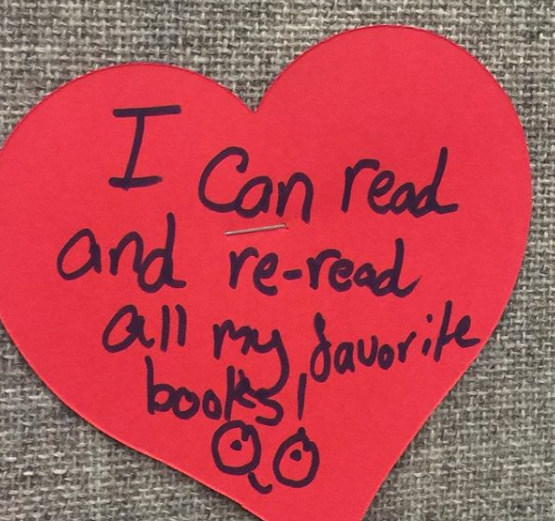 I Can read
and re-read
all my favorite
books!